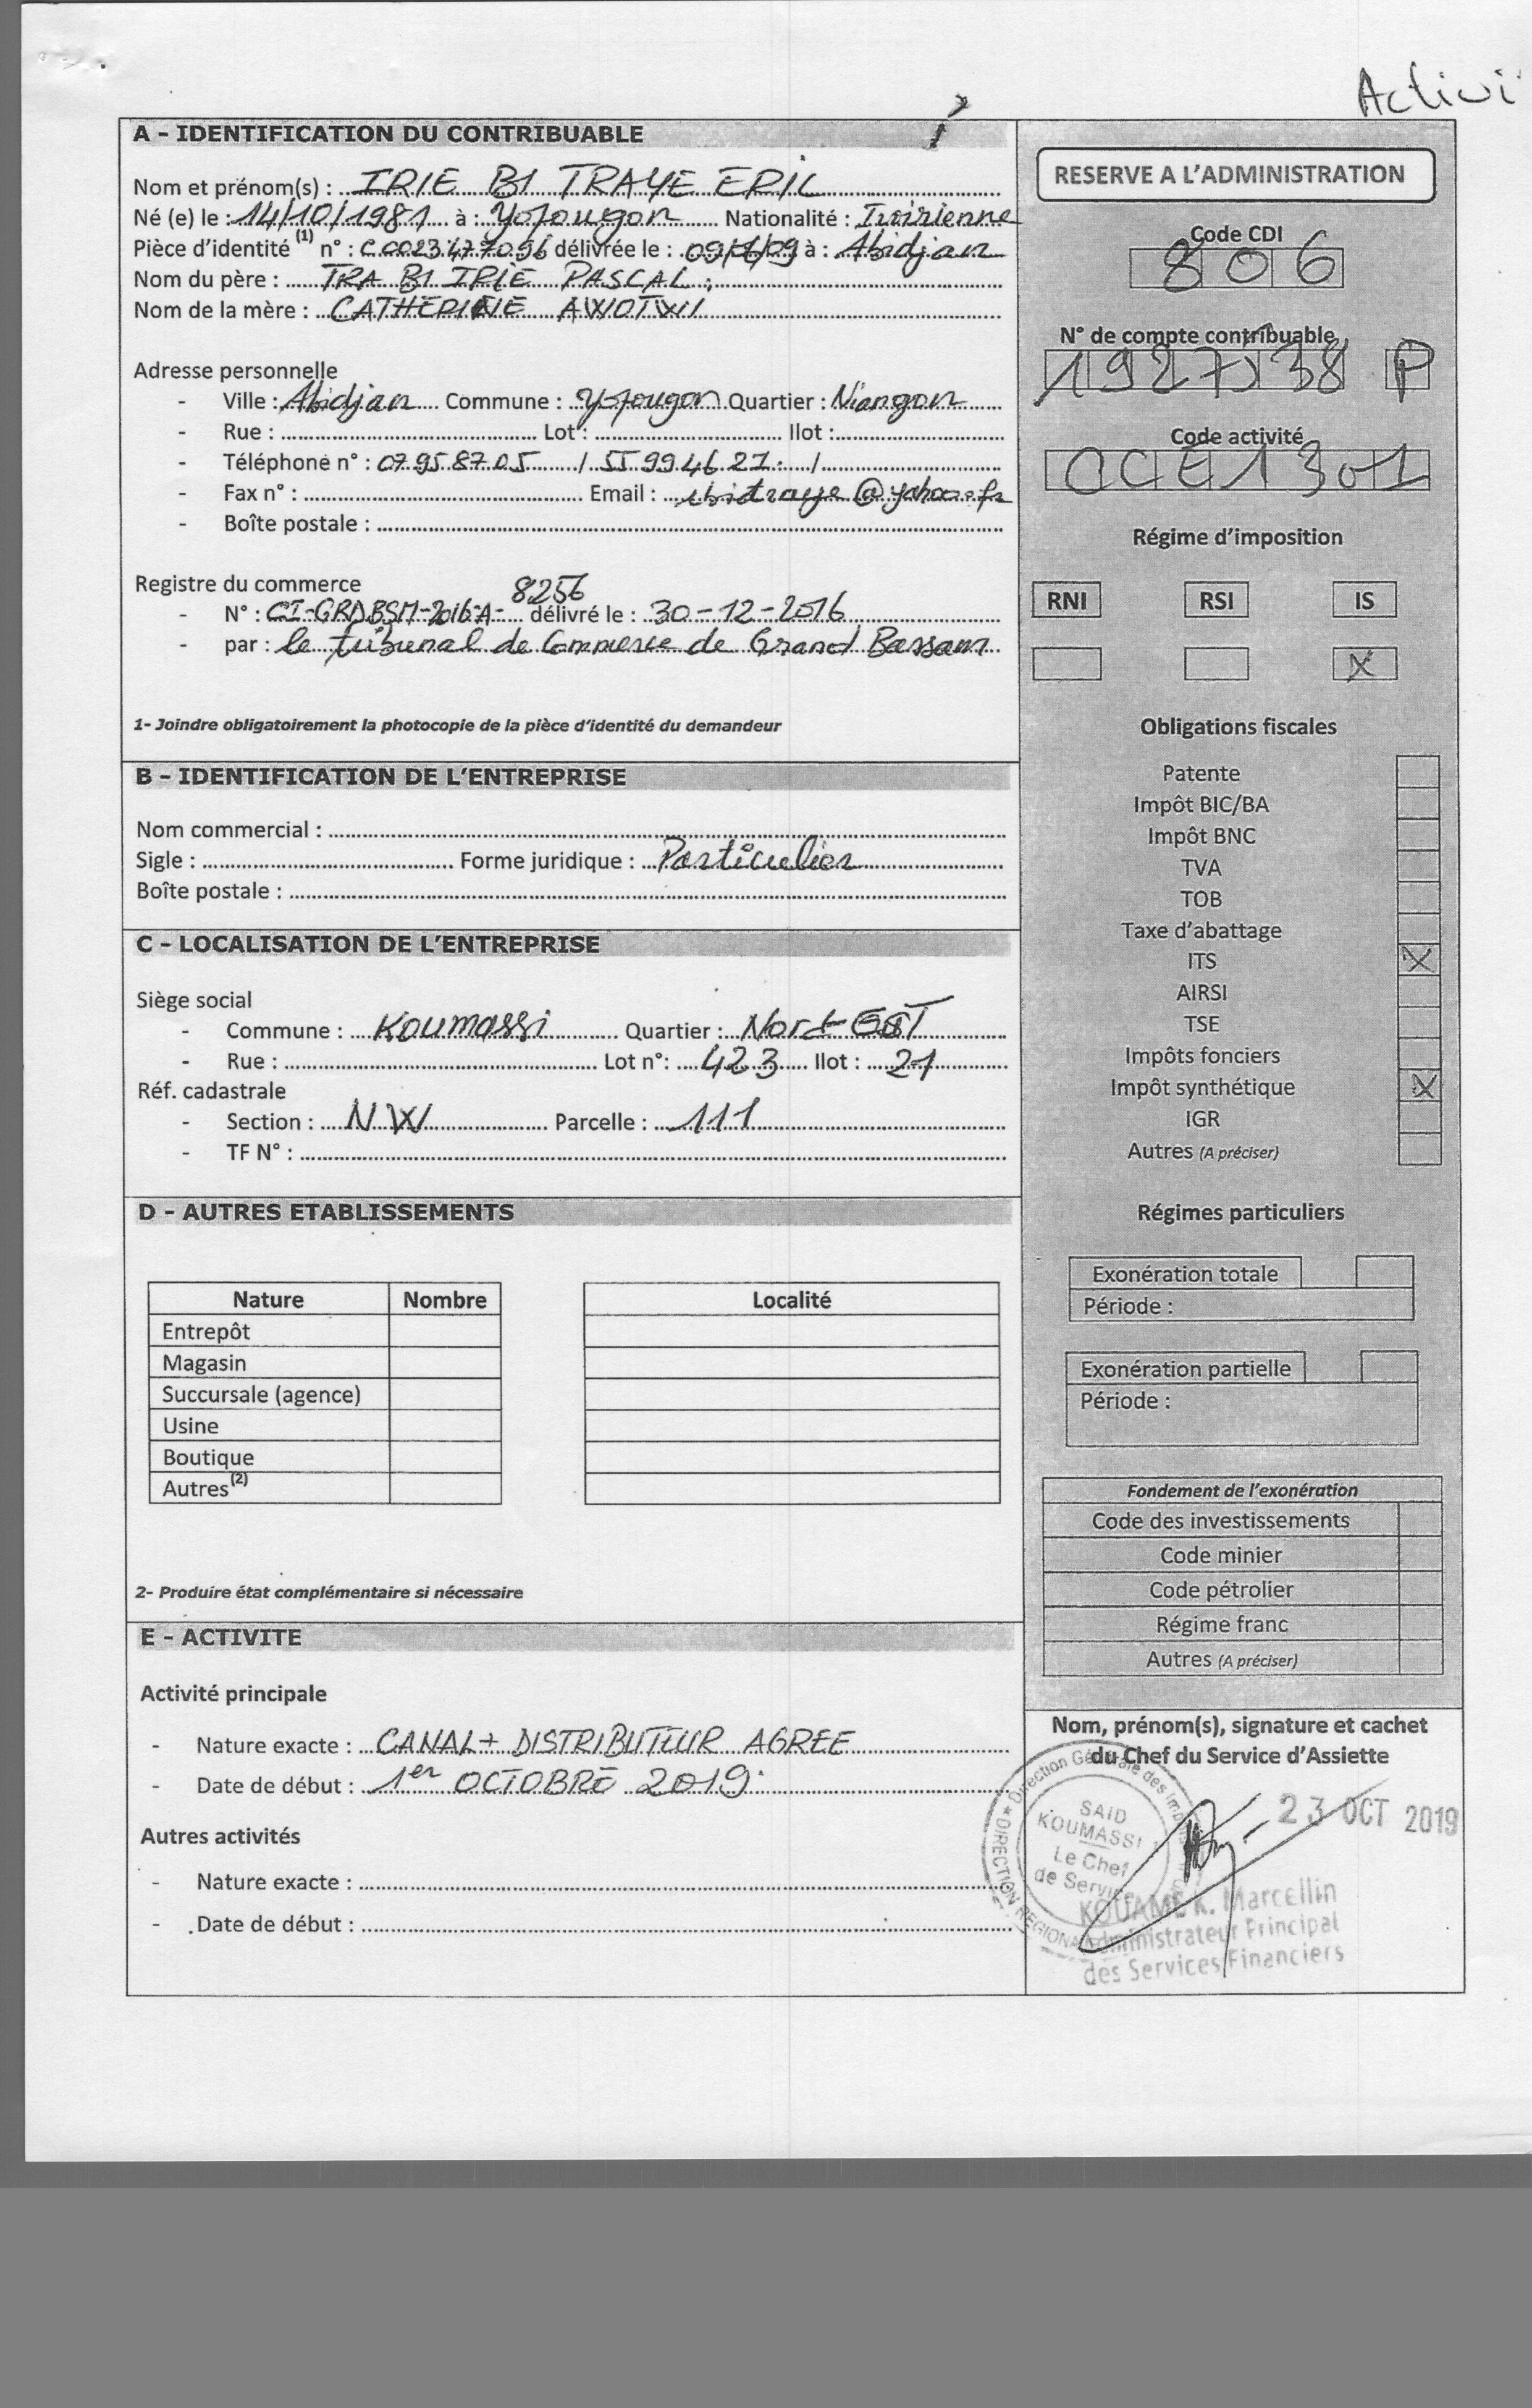 Activi
A - IDENTIFICATION DU CONTRIBUABLE
Nom et prénom(s) : IRIE BI TRAYE ERIC
Né (e) le : 14/10/1981 à : Yopougon Nationalité : Ivoirienne
Pièce d'identité (1) n° : C 0023 477096 délivrée le : à : Abidjan
Nom du père : TRA BI IRIE PASCAL
Nom de la mère : CATHERINE AWOTWI
Adresse personnelle
- Ville : Abidjan Commune : Yopougon Quartier : Niangon
- Rue : Lot : Ilot :
- Téléphone n° : 07 95 87 05 / 55 99 46 21 /
- Fax n° : Email :
- Boîte postale :
Registre du commerce
- N° : CI-GRDBSM-2016-A-8256 délivré le : 30-12-2016
- par : le tribunal de Commerce de Grand Bassam
1- Joindre obligatoirement la photocopie de la pièce d'identité du demandeur
B - IDENTIFICATION DE L'ENTREPRISE
Nom commercial :
Sigle : Forme juridique : Particulier
Boîte postale :
C - LOCALISATION DE L'ENTREPRISE
Siège social
- Commune : Koumassi Quartier : Nord EST
- Rue : Lot n°: 423 Ilot : 21
Réf. cadastrale
- Section : NW Parcelle : 111
- TF N° :
D - AUTRES ETABLISSEMENTS
Nature Nombre Localité
Entrepôt
Magasin
Succursale (agence)
Usine
Boutique
Autres(2)
2- Produire état complémentaire si nécessaire
E - ACTIVITE
Activité principale
- Nature exacte : CANAL+ DISTRIBUTEUR AGREE
- Date de début : 1er OCTOBRE 2019
Autres activités
- Nature exacte :
- Date de début :
RESERVE A L'ADMINISTRATION
Code CDI
806
N° de compte contribuable
1927738 P
Code activité
Régime d'imposition
RNI RSI IS
X
Obligations fiscales
Patente
Impôt BIC/BA
Impôt BNC
TVA
TOB
Taxe d'abattage
ITS X
AIRSI
TSE
Impôts fonciers
Impôt synthétique X
IGR
Autres (A préciser)
Régimes particuliers
Exonération totale
Période :
Exonération partielle
Période :
Fondement de l'exonération
Code des investissements
Code minier
Code pétrolier
Régime franc
Autres (A préciser)
Nom, prénom(s), signature et cachet
du Chef du Service d'Assiette
Direction Générale des Impôts
DIRECTION REGIONA
SAID
KOUMASSI 1
Le Chef
de Service
23 OCT 2019
KOUAME K. Marcellin
Administrateur Principal
des Services Financiers